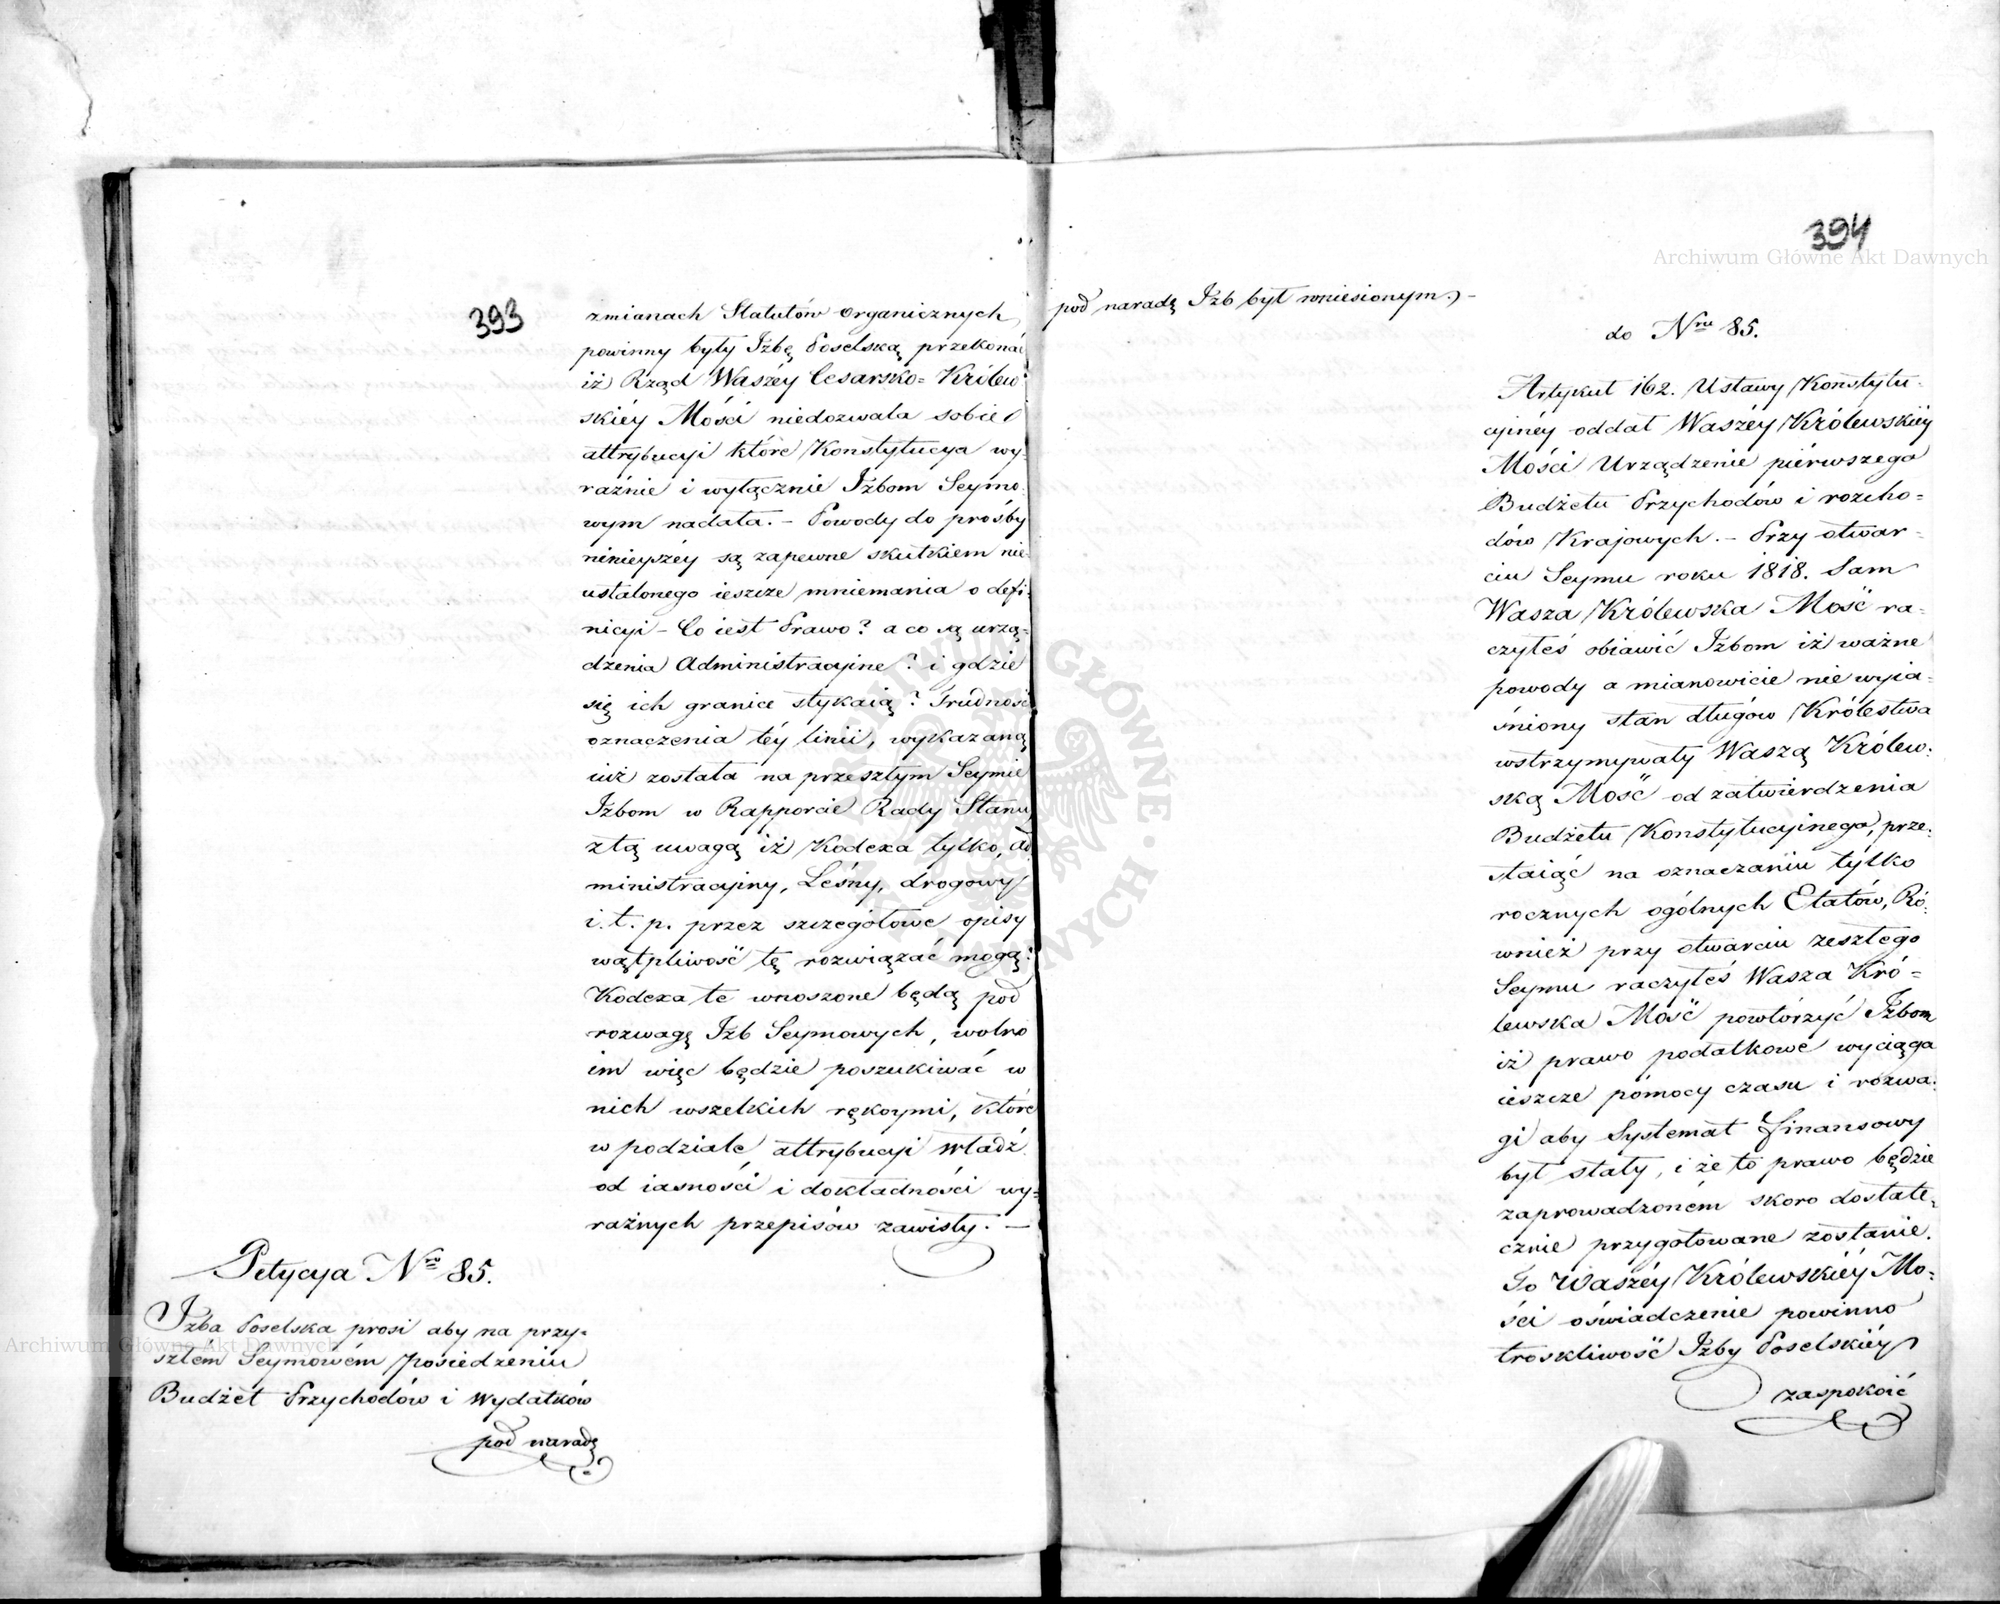 393
zmianach Statutów organicznych
powinny były Jzbę Poselską przekonać
iż Rząd Waszéy Cesarsko= Królew
skiéy Mości niedozwala sobie
attrybucyi które Konstytucya wy-
raźnie i wyłącznie Jzbom Seymo-
wym nadała. - Powody do prosby
ninieyszéy są zapewne skutkiem nie-
ustalonego ieszcze mniemania o defi-
nicyi - Co iest Prawo? a co są urzą-
dzenia Administracyine? i gdzie
się ich granice stykaią? Trudność
oznaczenia téy linii, wykazaną
iuż została na przeszłym Seymie
Jzbom w Rapporcie Rady Stanu
ztą uwagą iż Kodexa tylko, Ad
ministracyiny, Leśny, drogowy
i. t. p. przez szczegółowe opisy
wątpliwość tę rozwiązać mogą:
Kodexa te wnoszone będą pod
rozwagę Jzb Seymowych, wolno
im więc będzie poszukiwać w
nich wszelkich rękoymi, które
w podziale attrybucyi Władz
od iasności i dokładności wy=
raźnych przepisów zawisły. -
Petycya Nro 85.
Jzba Poselska prosi aby na przy=
szłém Seymowém posiedzeniu
Budżet Przychodów i Wydatków
pod naradę
394
pod naradę Jzb był wniesionym. -
do Nru 85.
Artykuł 162. Ustawy Konstytu-
cyinéy oddał Waszéy Królewskiéy
Mości Urządzenie piérwszego
Budżetu Przychodów i rozcho=
dów Krajowych. - Przy otwar-
ciu Seymu roku 1818. Sam
Wasza Królewska Mość ra-
czyłeś obiawić Jzbom iż ważne
powody a mianowicie nie wyia-
śniony stan długów Królestwa
wstrzymywały Waszą Królew-
ską Mość od zatwierdzenia
Budżetu Konstytucyinego, prze-
staiąć na oznaczaniu tylko
rocznych ogólnych Etatów, Ró-
wnież przy otwarciu zeszłego
Seymu raczyłeś Wasza Kró=
lewska Mość powtórzyć Jzbom
iż prawo podatkowe wyciąga
ieszcze pomocy czasu i rozwa-
gi aby Systemat Finansowy
był stały, i że to prawo będzie
zaprowadzoném skoro dostate-
cznie przygotowane zostanie.
To Waszéy Królewskiéy Mo-
ści oświadczenie powinno
troskliwość Jzby Poselskiéy
zaspokoić
Archiwum Główne Akt Dawnych
Archiwum Główne Akt Dawnych
ARCHIWUM GŁÓWNE AKT DAWNYCH